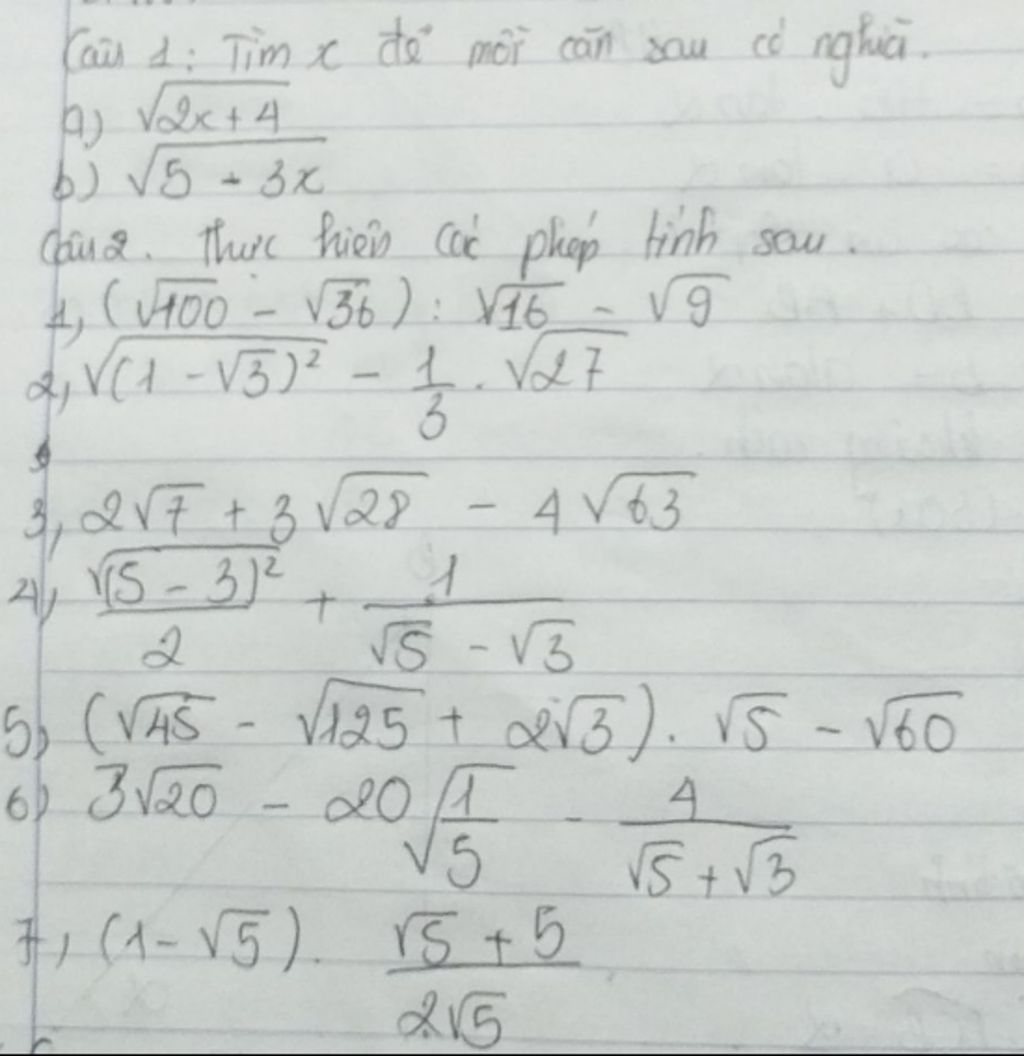 Câu 1: Tìm x để mỗi căn sau có nghĩa.
a) √(2x + 4)
b) √(5 - 3x)
Câu 2. Thực hiện các phép tính sau.
1, (√100 - √36) : √16 - √9
2, √((1 - √3)²) - 1/3 . √27
3, 2√7 + 3√28 - 4√63
4, √((5 - 3)²)/2 + 1/(√5 - √3)
5) (√45 - √125 + 2√3) . √5 - √60
6) 3√20 - 20√(1/5) - 4/(√5 + √3)
7, (1 - √5) . (√5 + 5)/(2√5)